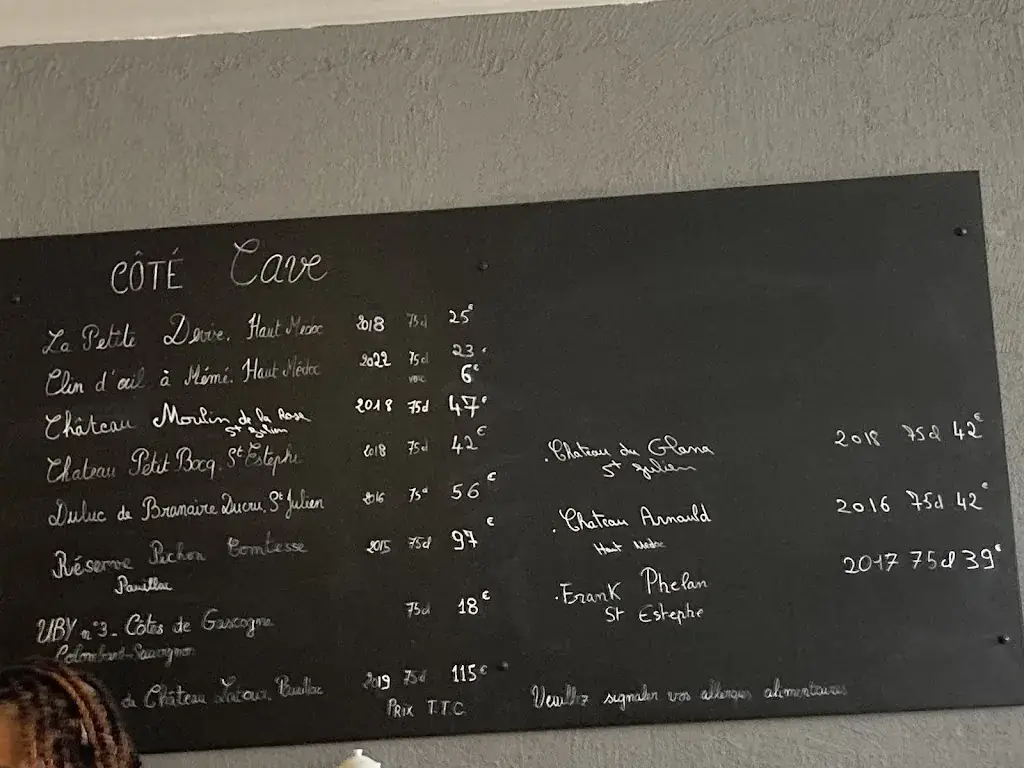 CÔTÉ Cave
La Petite Devise. Haut Medoc 2018 75cl 25€
Clin d'œil à Mémé. Haut Médoc 2022 75cl 23€
verre 6€
Château Moulin de la Rose 2018 75cl 47€
St Julien
Chateau Petit Bocq. St Estephe 2018 75cl 42€
Duluc de Branaire Ducru. St Julien 2016 75cl 56€
Réserve Pichon Comtesse 2015 75cl 97€
Pauillac
UBY n°3 - Côtes de Gascogne 75cl 18€
Colombard-Sauvignon
de Château Latour, Pauillac 2019 75cl 115€
PRIX T.T.C
. Chateau du Glana 2018 75cl 42€
St Julien
. Chateau Arnauld 2016 75cl 42€
Haut Medoc
. Frank Phelan 2017 75cl 39€
St Estephe
Veuillez signaler vos allergies alimentaires